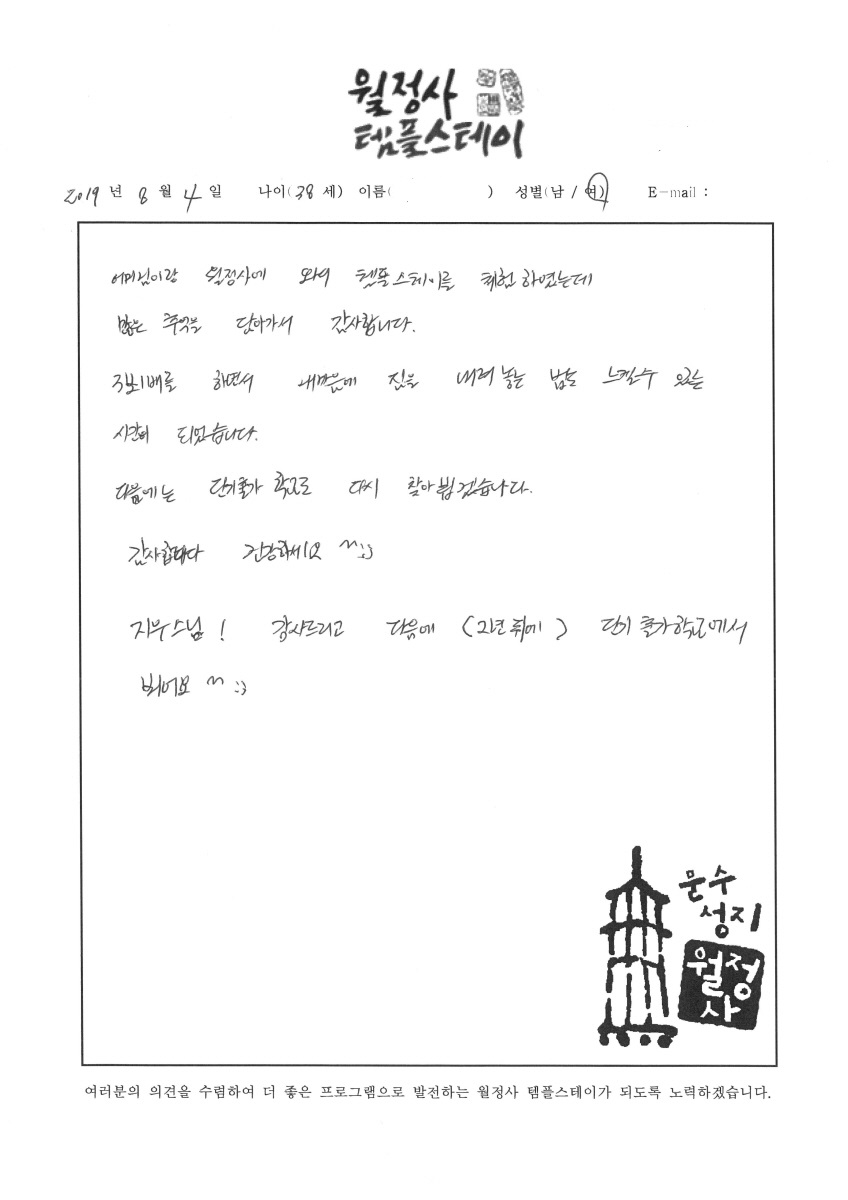 월정사
템플스테이
2019 년 8 월 4 일 나이( 38 세) 이름( ) 성별(남 / 여) E-mail :
어머님이랑 월정사에 와서 템플스테이를 체험하였는데
많은 추억을 담아가서 감사합니다.
하면서 내마음에 짐을 내려 놓는 법도 느낄수 있는
시간이 되었습니다.
다음에는 단기출가 학교로 다시 찾아뵙겠습니다.
감사합니다 건강하세요 ~ :)
지우스님! 감사드리고 다음에 (2년 뒤에) 단기 출가학교에서
뵈어요 ~ :)
문수
성지
월정
사
여러분의 의견을 수렴하여 더 좋은 프로그램으로 발전하는 월정사 템플스테이가 되도록 노력하겠습니다.